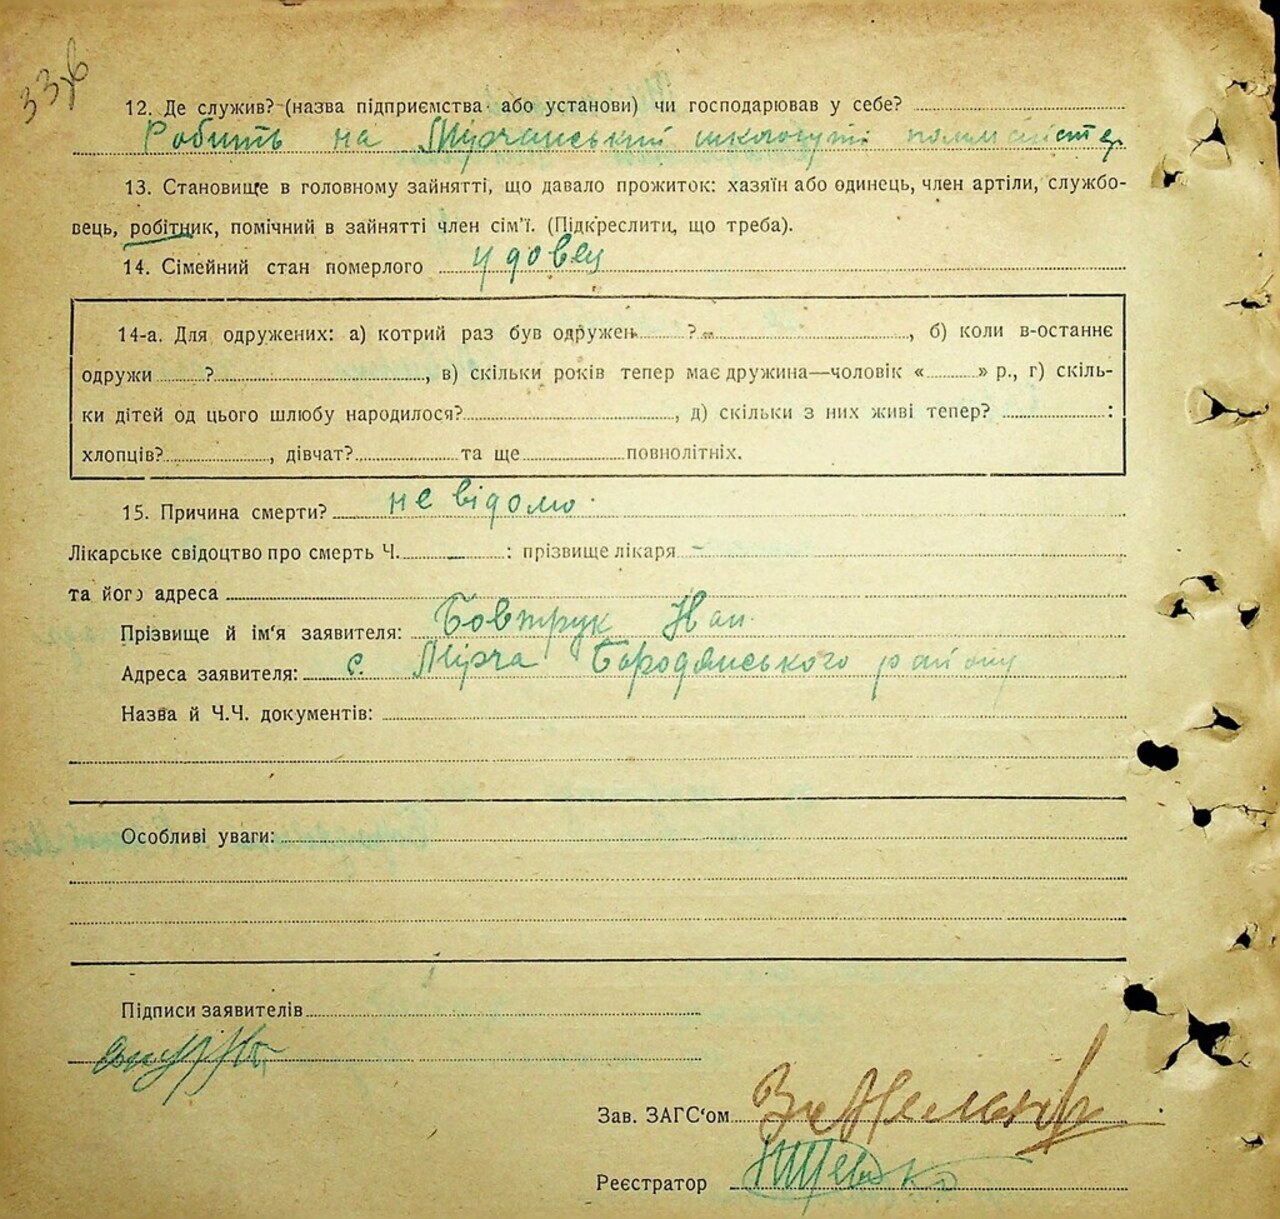 12. Де служив? (назва підприємства або установи) чи господарював у себе?
Робить на Мірчанський
13. Становище в головному зайнятті, що давало прожиток: хазяїн або одинець, член артіли, службо-
вець, робітник, помічний в зайнятті член сім'ї. (Підкреслити, що треба).
14. Сімейний стан померлого удовец
14-а. Для одружених: а) котрий раз був одружен ? , б) коли в-останнє
одружи ? , в) скільки років тепер має дружина—чоловік « » р., г) скіль-
ки дітей од цього шлюбу народилося? , д) скільки з них живі тепер? :
хлопців? , дівчат? та ще повнолітніх.
15. Причина смерти? не відомо.
Лікарське свідоцтво про смерть Ч. — : прізвище лікаря —
та його адреса
Прізвище й ім'я заявителя: Бовтрук
Адреса заявителя: с. Мірча Бородянського району
Назва й Ч.Ч. документів:
Особливі уваги:
Підписи заявителів
Зав. ЗАГС'ом
Реєстратор